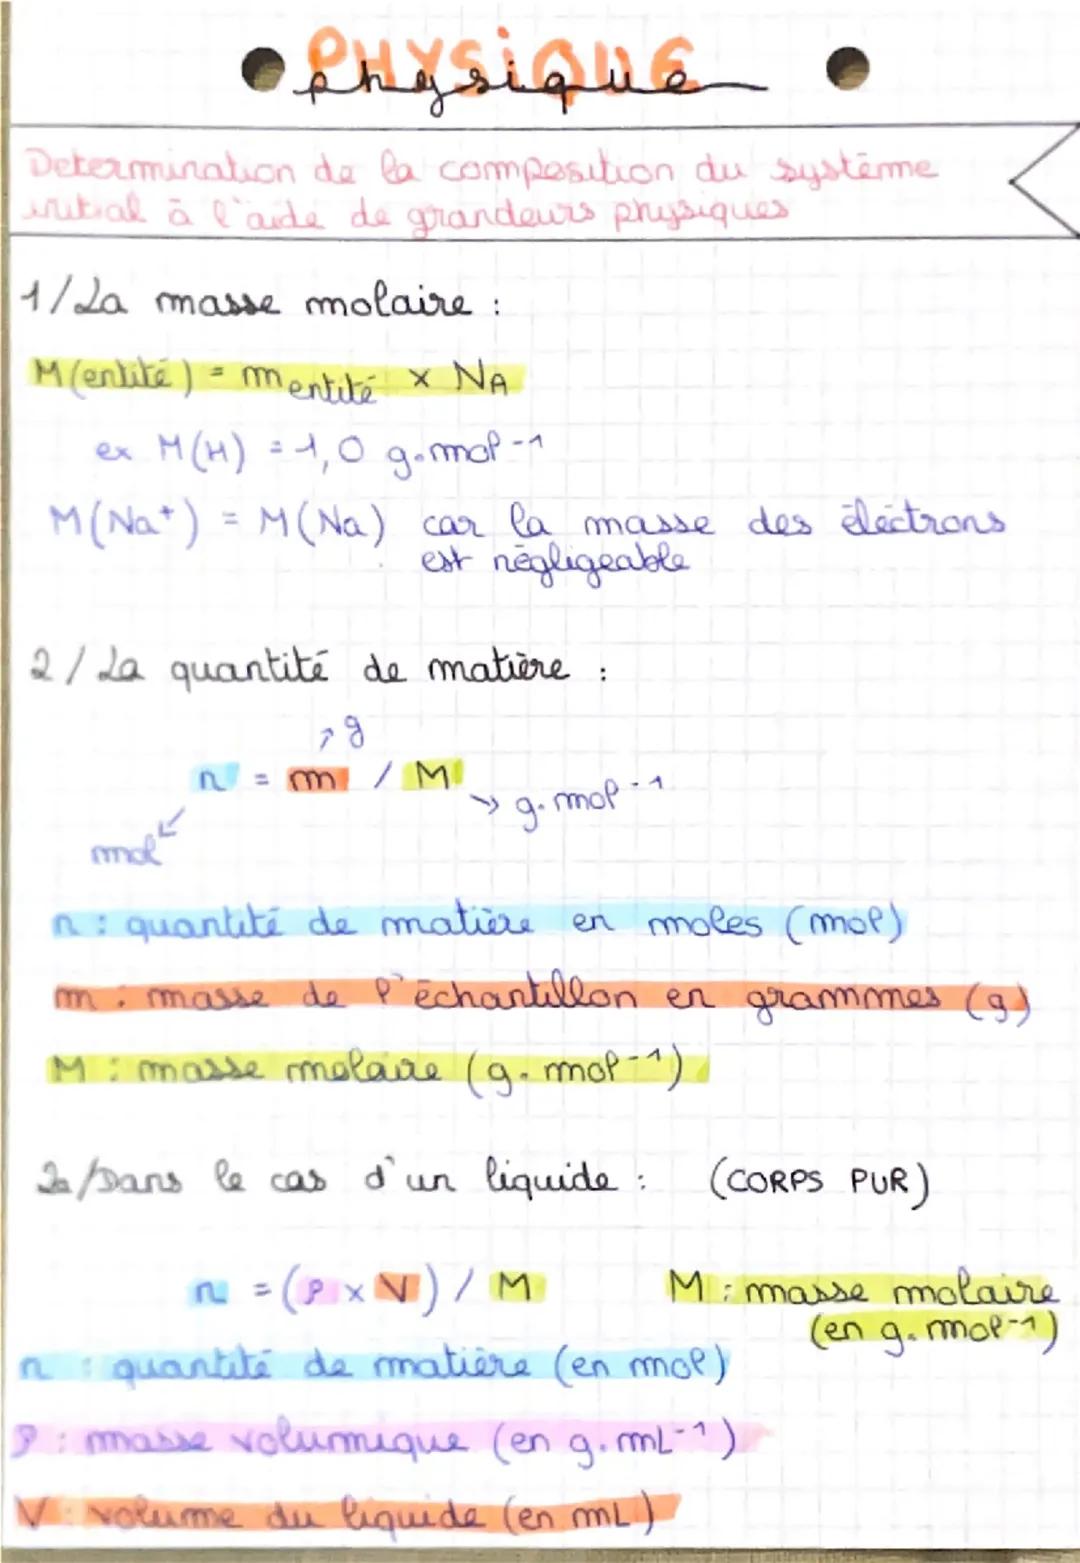 PHYSIQUE
physique
Determination de la composition du système
initial à l'aide de grandeurs physiques
1/ La masse molaire :
M(entité) = m entité × NA
ex M(H) = 1,0 g.mol-1
M(Na+) = M(Na) car la masse des électrons
est négligeable
2/ La quantité de matière :
↗ g
n = m / M
→ g.mol-1
mol ↙
n : quantité de matière en moles (mol)
m : masse de l'échantillon en grammes (g)
M : masse molaire (g.mol-1)
2a/ Dans le cas d'un liquide : (CORPS PUR)
n = (ρ × V) / M M : masse molaire
(en g.mol-1)
n : quantité de matière (en mol)
ρ : masse volumique (en g.mL-1)
V : volume du liquide (en mL)